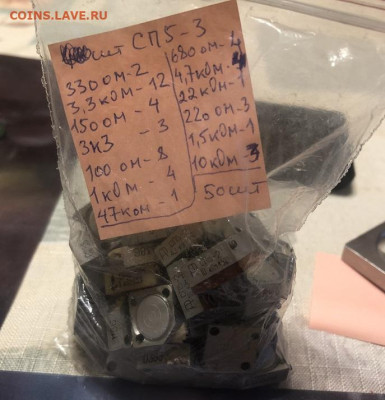 COINS.LAVE.RU
шт СП5-3
330 ом - 2
3,3 ком - 12
150 ом - 4
3к3 - 3
100 ом - 8
1 кОм - 4
47 ком - 1
680 ом - 4
4,7 ком - 4
22 кОм - 1
220 ом - 3
1,5 ком - 1
10 ком - 3
50 шт